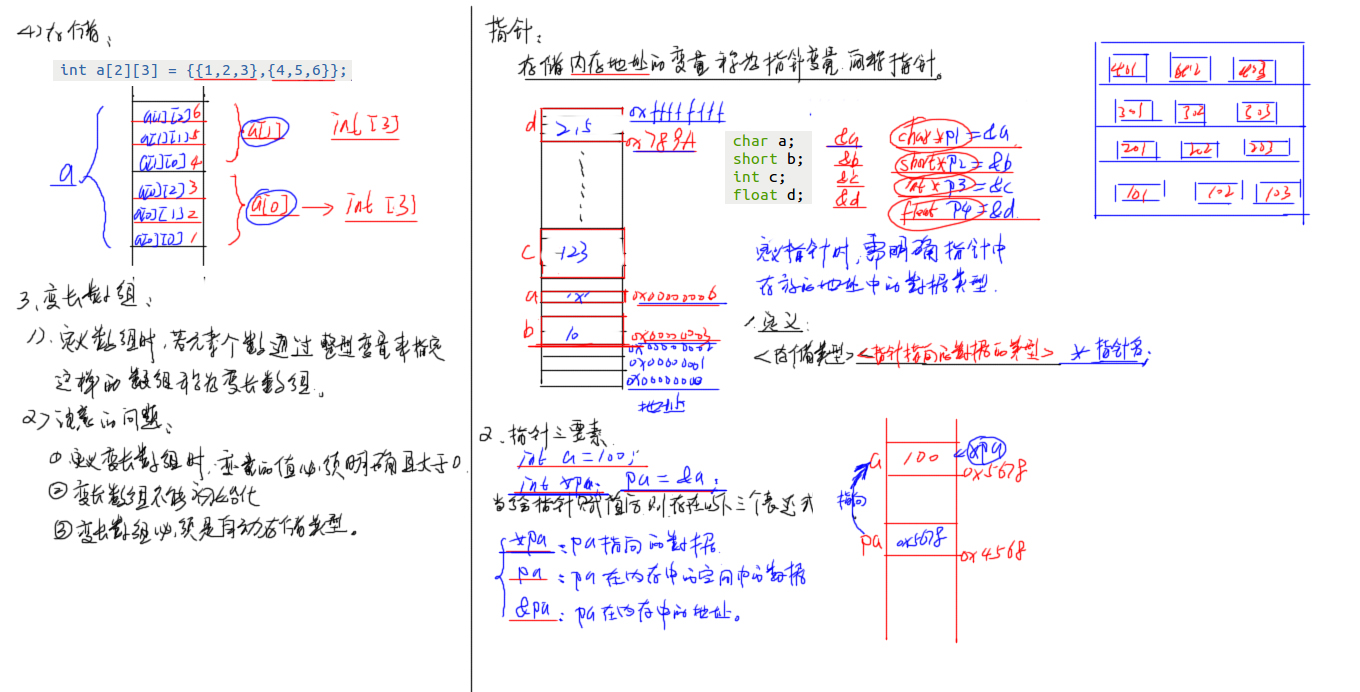 4)存储:
int a[2][3] = {{1,2,3},{4,5,6}};
a
a[1][2] 6
a[1][1] 5
a[1][0] 4
a[0][2] 3
a[0][1] 2
a[0][0] 1
a[1] int [3]
a[0] → int [3]
3、变长数组:
1)、定义数组时,若元素个数通过整型变量来指定
这样的数组称为变长数组.。
2)注意的问题:
① 定义变长数组时,变量的值必须明确且大于0.
② 变长数组不能初始化
③ 变长数组必须是自动存储类型。
指针:
存储内存地址的变量称为指针变量.简称指针。
0xffffffff
d 2.5
0x789A
c 123
a 'x' 0x00000006
b 10 0x00000003
0x00000002
0x00000001
0x00000000
地址
char a; &a char *p1=&a
short b; &b short* p2=&b
int c; &c int * p3=&c
float d; &d float P4=&d
定义指针时,需明确指针中
存放的地址中的数据类型.
401 402 403
301 302 303
201 202 203
101 102 103
1.定义:
<存储类型> <指针指向的数据的类型> * 指针名;
2、指针三要素
int a=100;
int *pa; pa=&a;
当给指针赋值后则存在以下三个表达式
*pa : pa指向的数据
pa : pa在内存中的空间中的数据
&pa : pa在内存中的地址。
a 100 *pa
0x5678
指向
pa 0x5678
0x4568